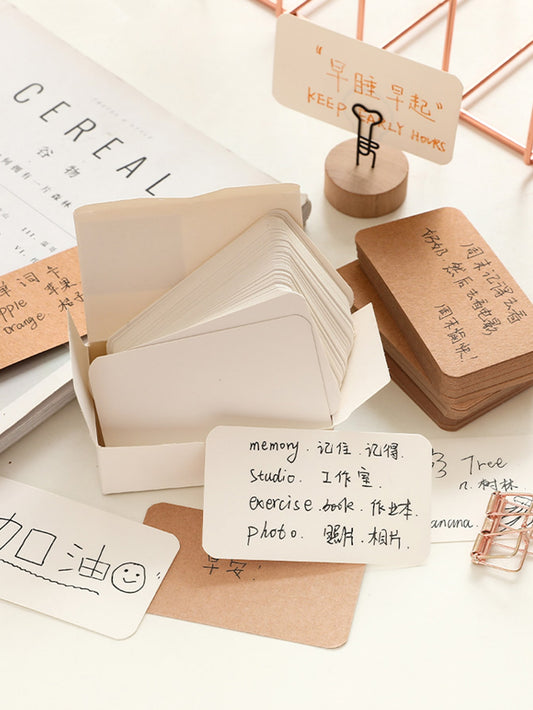 "早睡早起"
KEEP EARLY HOURS
CEREAL
谷物
单词卡
apple 苹果
orange 桔子
周末记得去看
奶奶 然后去看电影
周末愉快!
memory. 记住. 记得.
studio. 工作室.
exercise.book. 作业本.
photo. 照片.相片.
Tree
n.树林
banana.
加油
早安!